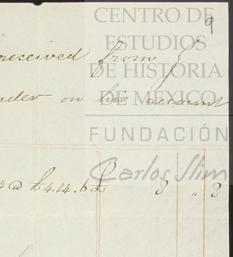 CENTRO DE
9
ESTUDIOS
received from J
DE HISTORIA
DE MEXICO
on his account
FUNDACIÓN
Carlos Slim
@ £4.14.6 £ 3 " 3